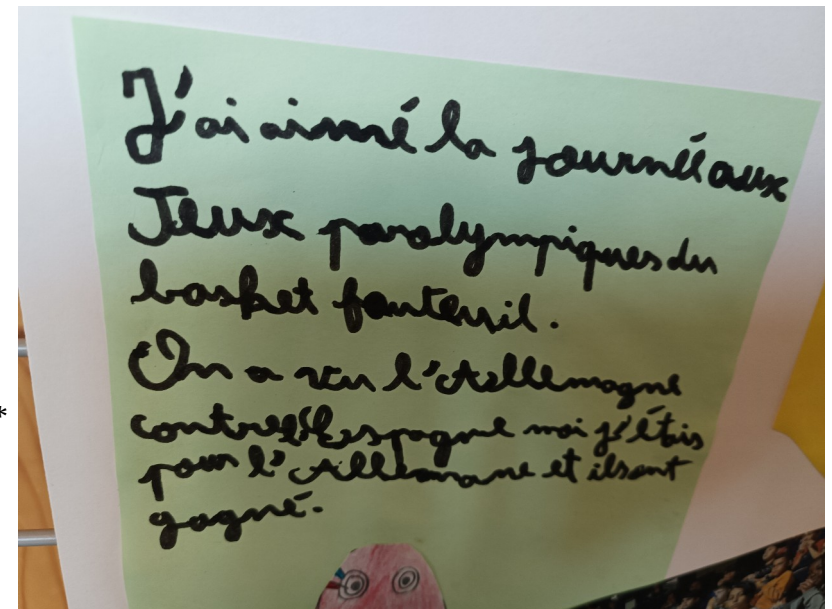 J'ai aimé la journéé aux
Jeux paralympiques du
basket fauteuil.
On a vu l'Allemagne
contre l'Espagne moi j'étis
pour l'Allemane et ilsont
gagné.